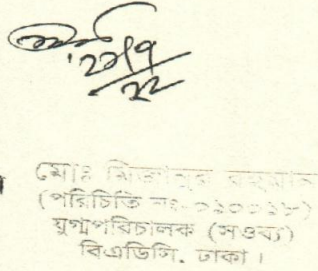 মোঃ মিজানুর রহমান
(পরিচিতি নং-০১০০১৮)
যুগ্মপরিচালক (সওব্য)
বিএডিসি, ঢাকা।